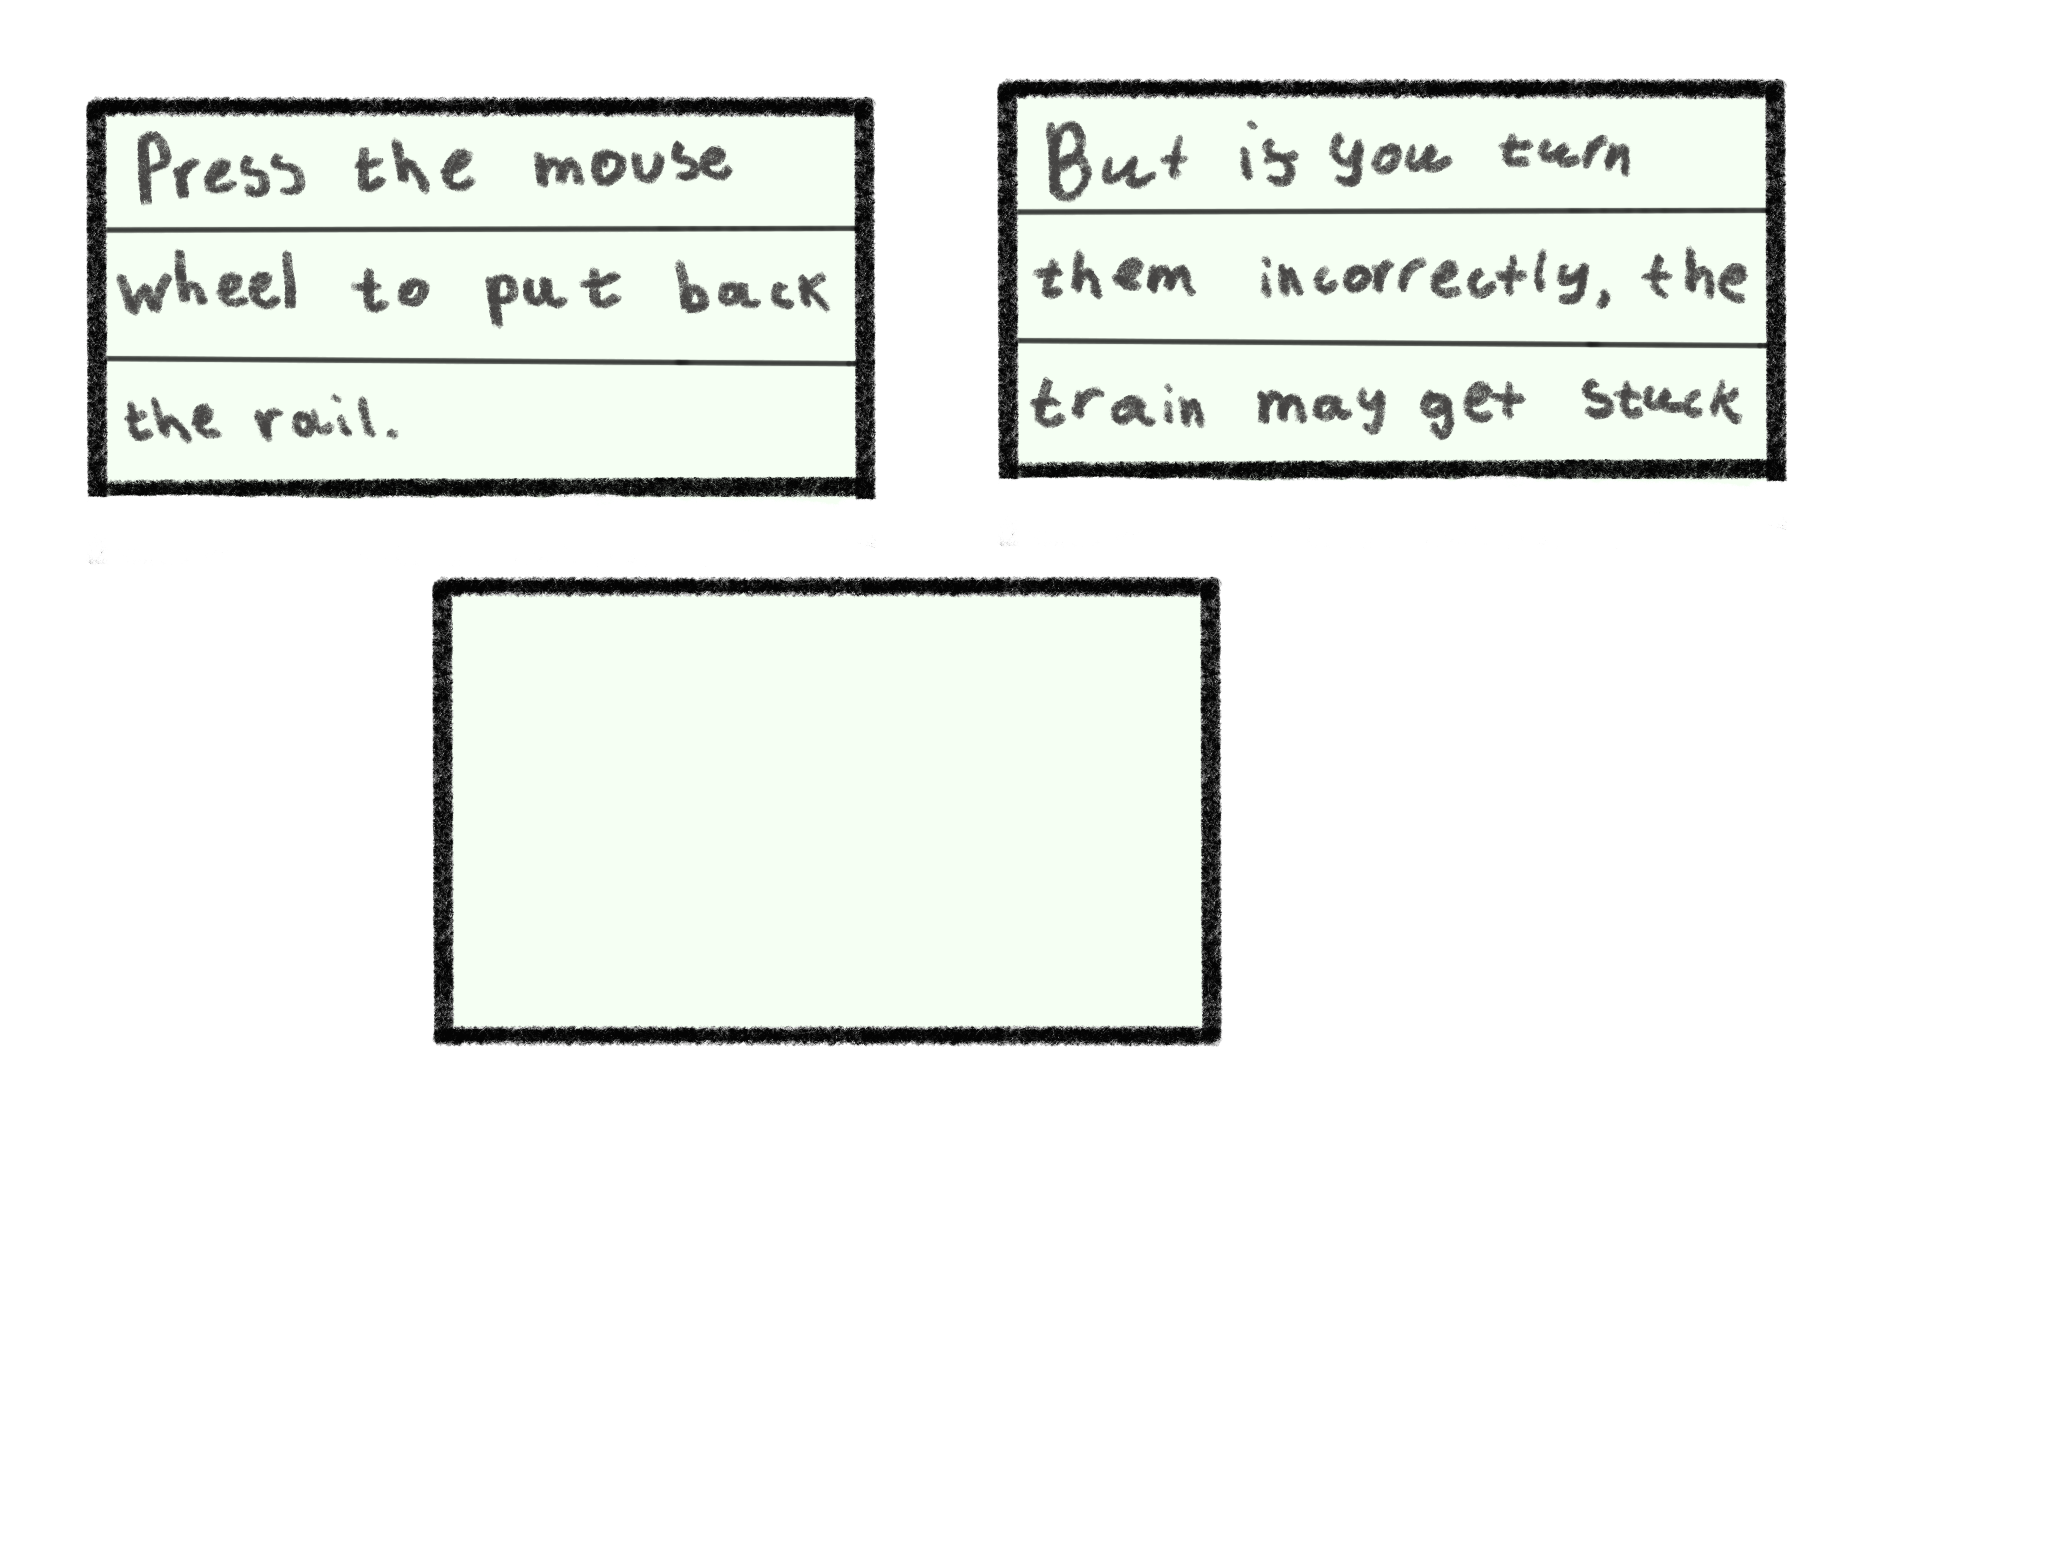 Press the mouse
wheel to put back
the rail.
But is you turn
them incorrectly, the
train may get stuck